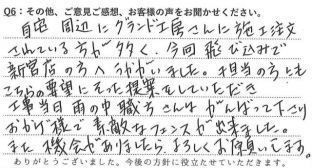 Q6：その他、ご意見ご感想、お客様の声をお聞かせください。
自宅周辺にグランド工房さんに施工注文
されている方が多く、今回飛び込みで
新宮店の方へうかがいました。担当の方も
こちらの要望にそった提案をしていただき
工事当日雨の中職人さんはがんばって下さり
おかげ様で素敵なフェンスが出来ました。
また機会がありましたら、よろしくお願いします。
ありがとうございました。今後の方針に役立たせていただきます。